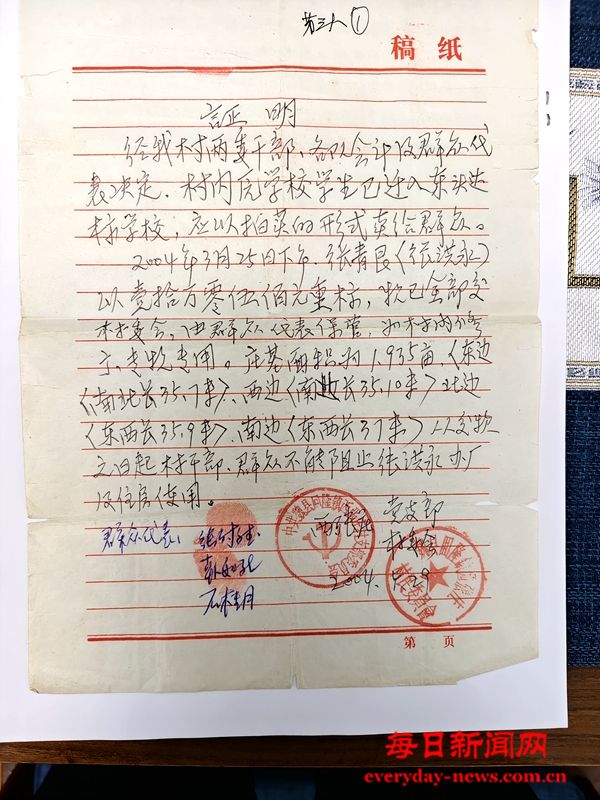 第三人①
稿 纸
証 明
经我村两委干部、各队会计及群众代
表决定.村内原学校学生已迁入东头边
村学校,应以拍卖的形式卖给群众。
2004年3月25日下午.张青良〈张洪永〉
以壹拾万零伍佰元重标,款已全部交
村委会,由群众代表保管,
专款专用。庄基面积约1.935亩,〈东边
〈南北长35.7米〉、西边〈南边长35.10米〉北边
〈东西长35.9米〉、南边〈东西长37米〉以交款
之日起村干部.群众不能阻止张洪永办厂
及住房使用。
群众代表、
党支部
村委会
2004.
第 页
每日新闻网
everyday-news.com.cn